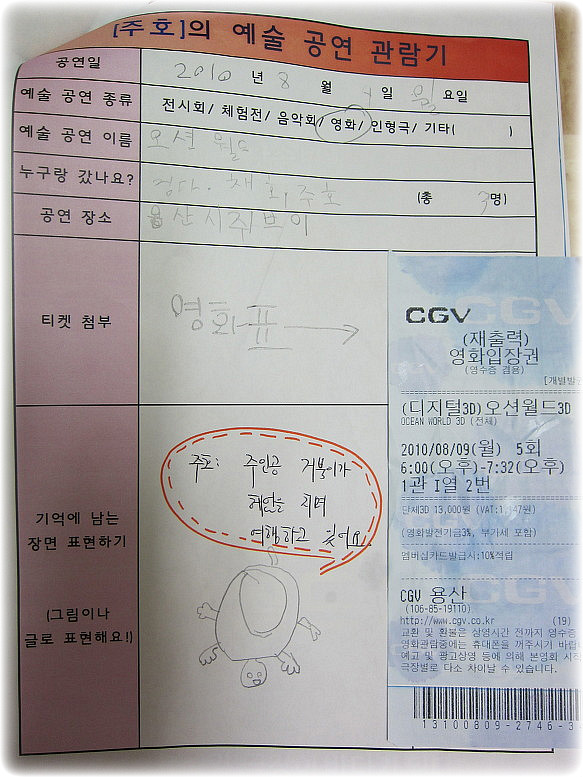 [주호]의 예술 공연 관람기
공연일 2010 년 8 월 일 월 요일
예술 공연 종류 전시회/ 체험전/ 음악회/ 영화/ 인형극/ 기타( )
예술 공연 이름 오션 월드
누구랑 갔나요? 주호 (총 3명)
공연 장소 용산시쥐브이
티켓 첨부 영화표
기억에 남는
장면 표현하기
(그림이나
글로 표현해요!)
주호: 주인공 거북이가
여행하고 있어요.
CGV
(재출력)
영화입장권
(영수증 겸용)
(디지털3D)오션월드3D
OCEAN WORLD 3D (전체)
2010/08/09(월) 5회
6:00(오후)-7:32(오후)
1관 I열 2번
단체3D 13,000원 (VAT:1,147원)
(영화발전기금3%, 부가세 포함)
멤버십카드발급시:10%적립
CGV 용산
(106-85-19110)
http://www.cgv.co.kr (19)
교환 및 환불은 상영시간 전까지 영수증
영화관람중에는 휴대폰을 꺼주시기 바랍
예고 및 광고상영 등에 의해 본영화 시작
극장별로 다소 차이날 수 있습니다.
13100809-2746-3